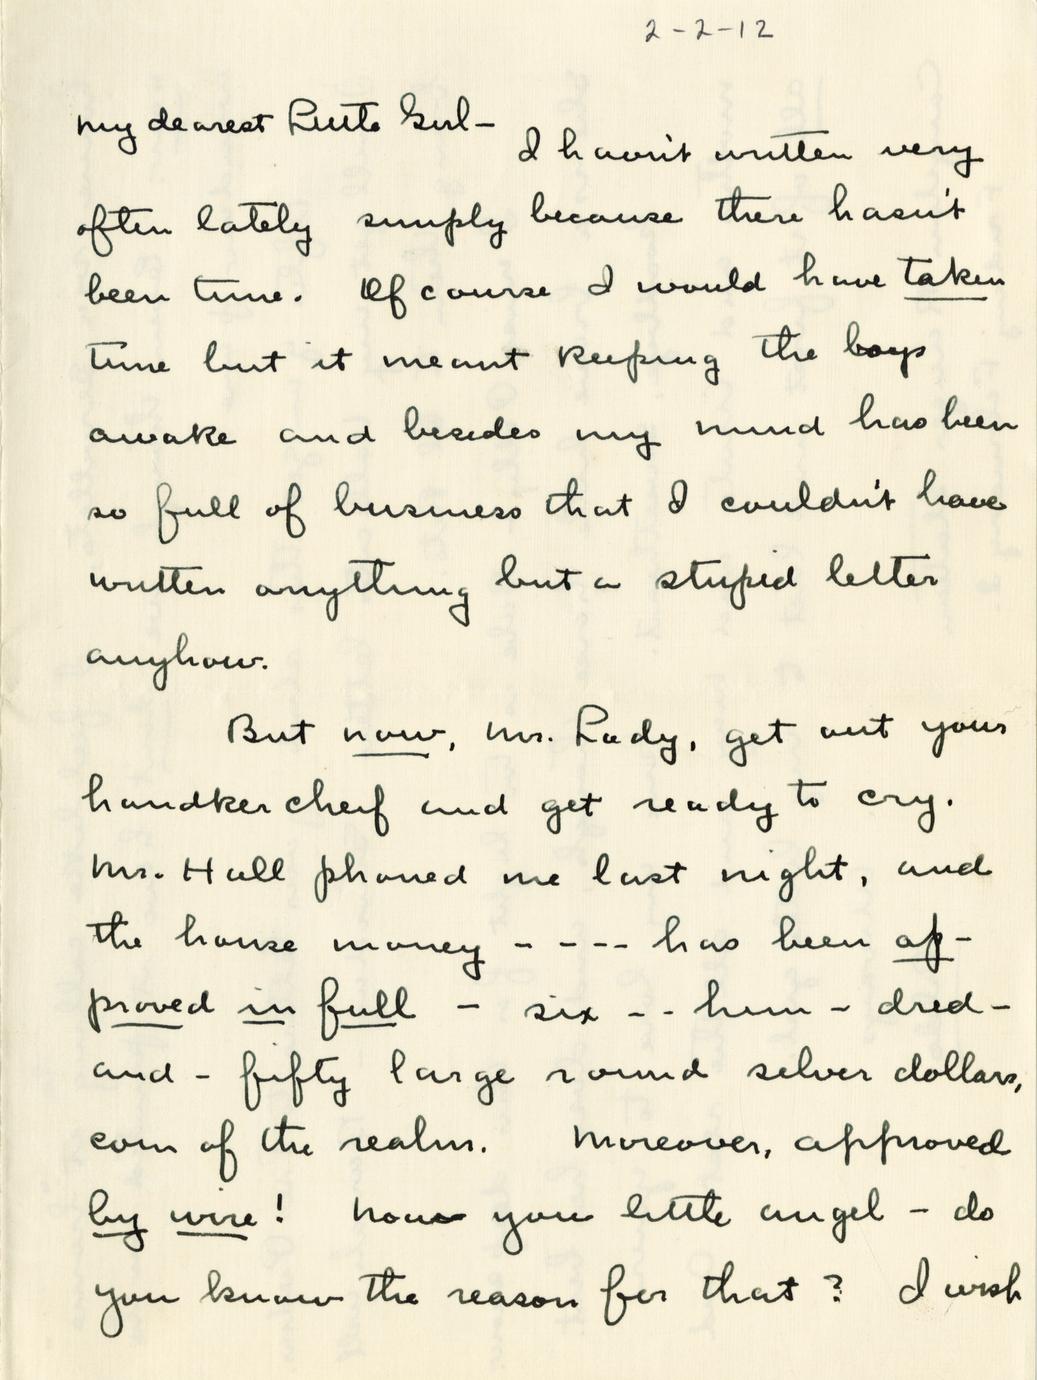 2-2-12
My dearest Little Girl-
I havn't written very
often lately simply because there hasn't
been time. Of course I would have taken
time but it meant keeping the boys
awake and besides my mind has been
so full of business that I couldn't have
written anything but a stupid letter
anyhow.
But now, Mrs. Lady, get out your
handkercheif and get ready to cry.
Mr. Hall phoned me last night, and
the house money - - - - has been ap-
proved in full - six - - hun - dred -
and - fifty large round silver dollars,
coin of the realm. Moreover, approved
by wire! Now you little angel - do
you know the reason for that? I wish